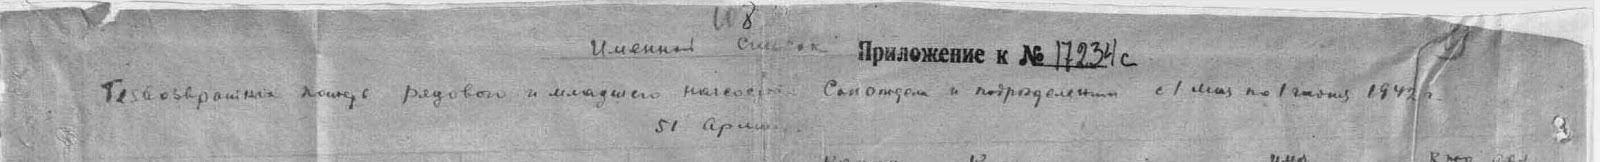 108
Именной список Приложение к № 17234с
Безвозвратных потерь рядового и младшего начсостава Санотдела и подразделений с 1 мая по 1 июня 1942 г.
51 Армии